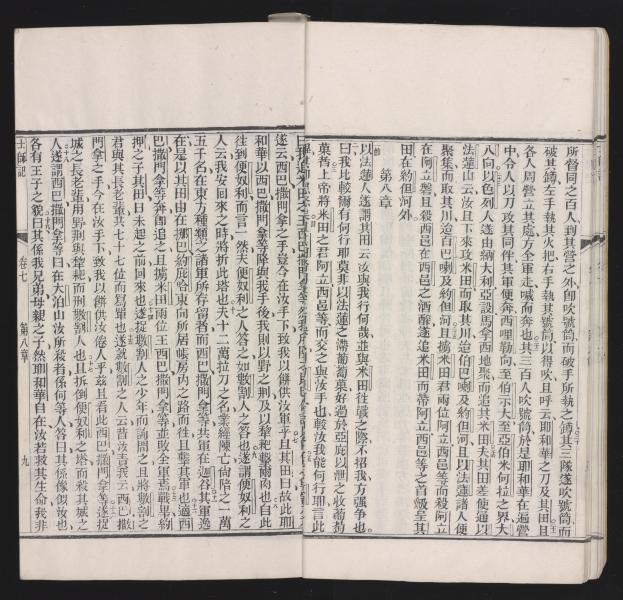 所督同之百人到其營之外即吹號筒而破手所執之罇其三隊遂吹號筒而
破其罇左手執其火把右手執其號筒以得吹且呼云耶和華之刀及其田且
各人周營立其處方全軍走喊而奔也其三百人吹號筒於是耶和華在遍營
中令人以刀攻其同伴其軍便奔西哩勒向至伯示大至亞伯米何拉之界大
八向以色列人遂由納大利亞設馬拿西地聚而追其米田夫其田差使通以
法蓮山云汝且下來攻米田而取其川迨伯巴喇及約但河且以法蓮諸人便
聚集而取其川迨百巴喇及約但河且擄米田君兩位阿立西邑等而殺阿立
在阿立磐且殺西邑在西邑之酒醡遂追米田而帶阿立西邑等之首級至其
田在約但河外
第八章
以法蓮人遂謂其田云汝與我行何哉並與米田往戰之際不招我方强争也
曰我比較爾有何行耶莫非以法蓮之滯葡萄菓好過於亞庇以泄之收葡萄
菓耶上帝將米田之君阿立西邑等而交之與汝手也較汝我能何行耶言此
遂云西巴撒門拿之手豈今在汝手下致我以餅供汝軍乎且其田曰故此耶
和華以西巴撒門拿等降與我手後我則以野之荆及以犂耙擊爾肉也自此
往到便奴利而言一然夫便奴利之人答之如數割人之答也遂謂便奴利之
人云我安回來之時將折此塔也夫十二萬拉刀之名業經陣亡尚陪之一萬
五千名在東方種類之諸軍所存留者而西巴撒門拿等共軍在迦谷其軍逸
在是以其田由在挪巴約庇哈東向所居帳房內之路而往且擊其軍也適西
巴撒門拿等奔即追之且擄米田兩位王西巴撒門拿等並敗全軍焉戰畢約
押之子其田日未起之前回來也遂捉數割人之少年而詢問之且將數割之
君與其長老輩共七十七位而寫單也遂就數割之人云昔汝責我云西巴撒
門拿之手今在汝手下致我以餅供汝倦人乎茲且看此西巴撒門拿等遂捉
城之長老輩用野荆與犂耙而刑數割人也且拆倒便奴利之塔而殺其城之
人遂謂西巴撒門拿等曰在大泊山汝所殺者係何等人答曰其係像似汝也
各有王子之貌曰其係我兄弟母親之子然耶和華自在汝若救其生命我非
士師記
卷七
第八章
九